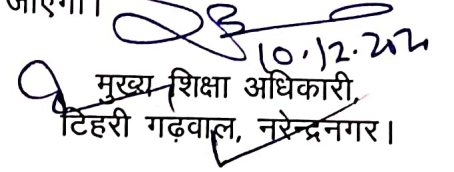 जाएगा।
10.12.2020
मुख्य शिक्षा अधिकारी,
टिहरी गढ़वाल, नरेन्द्रनगर।